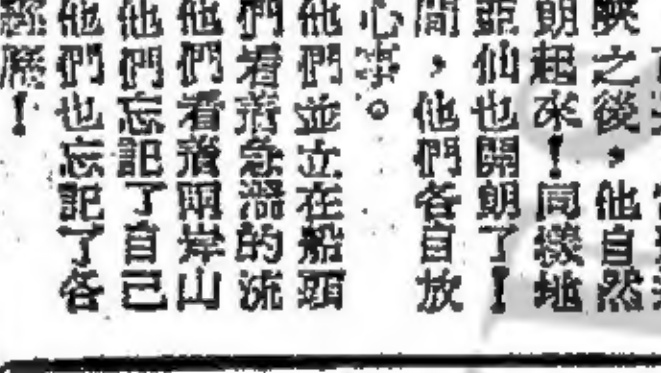 之後，他自然
朗起來！同樣地
亞仙也開朗了！
間，他們各自放
心事。
他們並立在船頭
們看着急湍的流
他們看着兩岸山
他們忘記了自己
他們也忘記了各
經歷！